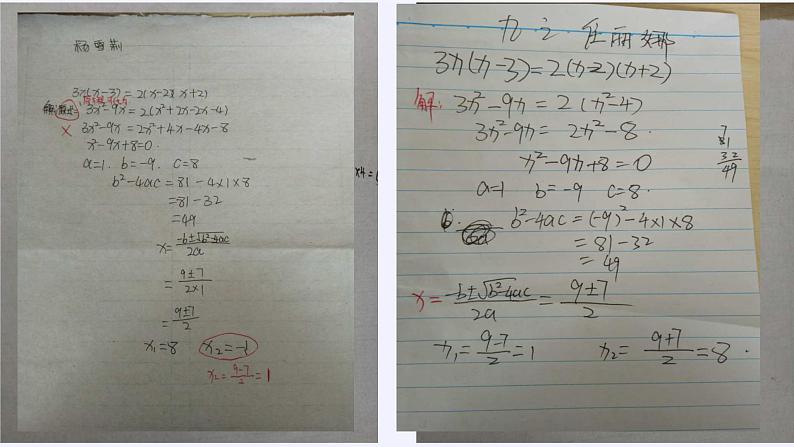 3x(x-3)=2(x-2)(x+2)
3x²-9x=2(x²+2x-2x-4)
× 3x²-9x=2x²+4x-4x-8
x²-9x+8=0.
a=1. b=-9. c=8
b²-4ac=81-4×1×8
=81-32
=49
x=\frac{-b±√b²-4ac}{2a}
=\frac{9±7}{2×1}
=\frac{9±7}{2}
x₁=8 x₂=-1
x₂=\frac{9-7}{2}=1
x4=
九之任丽娜
3x(x-3)=2(x-2)(x+2)
解: 3x²-9x=2(x²-4)
3x²-9x=2x²-8.
x²-9x+8=0
a=1 b=-9 c=8.
b²-4ac=(-9)²-4×1×8
=81-32
=49
81
32
49
x=\frac{-b±√b²-4ac}{2a}=\frac{9±7}{2}
x₁=\frac{9-7}{2}=1 x₂=\frac{9+7}{2}=8.